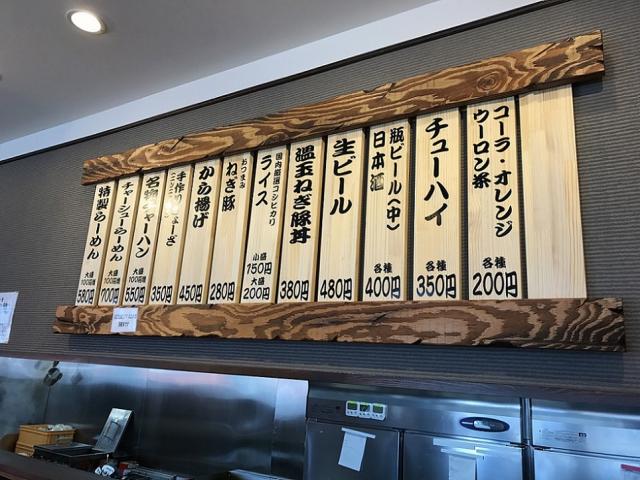 コーラ・オレンジ
ウーロン茶
各種
200円
チューハイ
各種
350円
瓶ビール(中)
日本酒
各種
400円
生ビール
480円
温玉ねぎ豚丼
380円
国内厳選コシヒカリ
ライス
小盛
150円
大盛
200円
おつまみ
ねぎ豚
280円
から揚げ
450円
手作り
350円
名物チャーハン
大盛
100円増
550円
チャーシューらーめん
大盛
100円増
700円
特製らーめん
大盛
100円増
580円